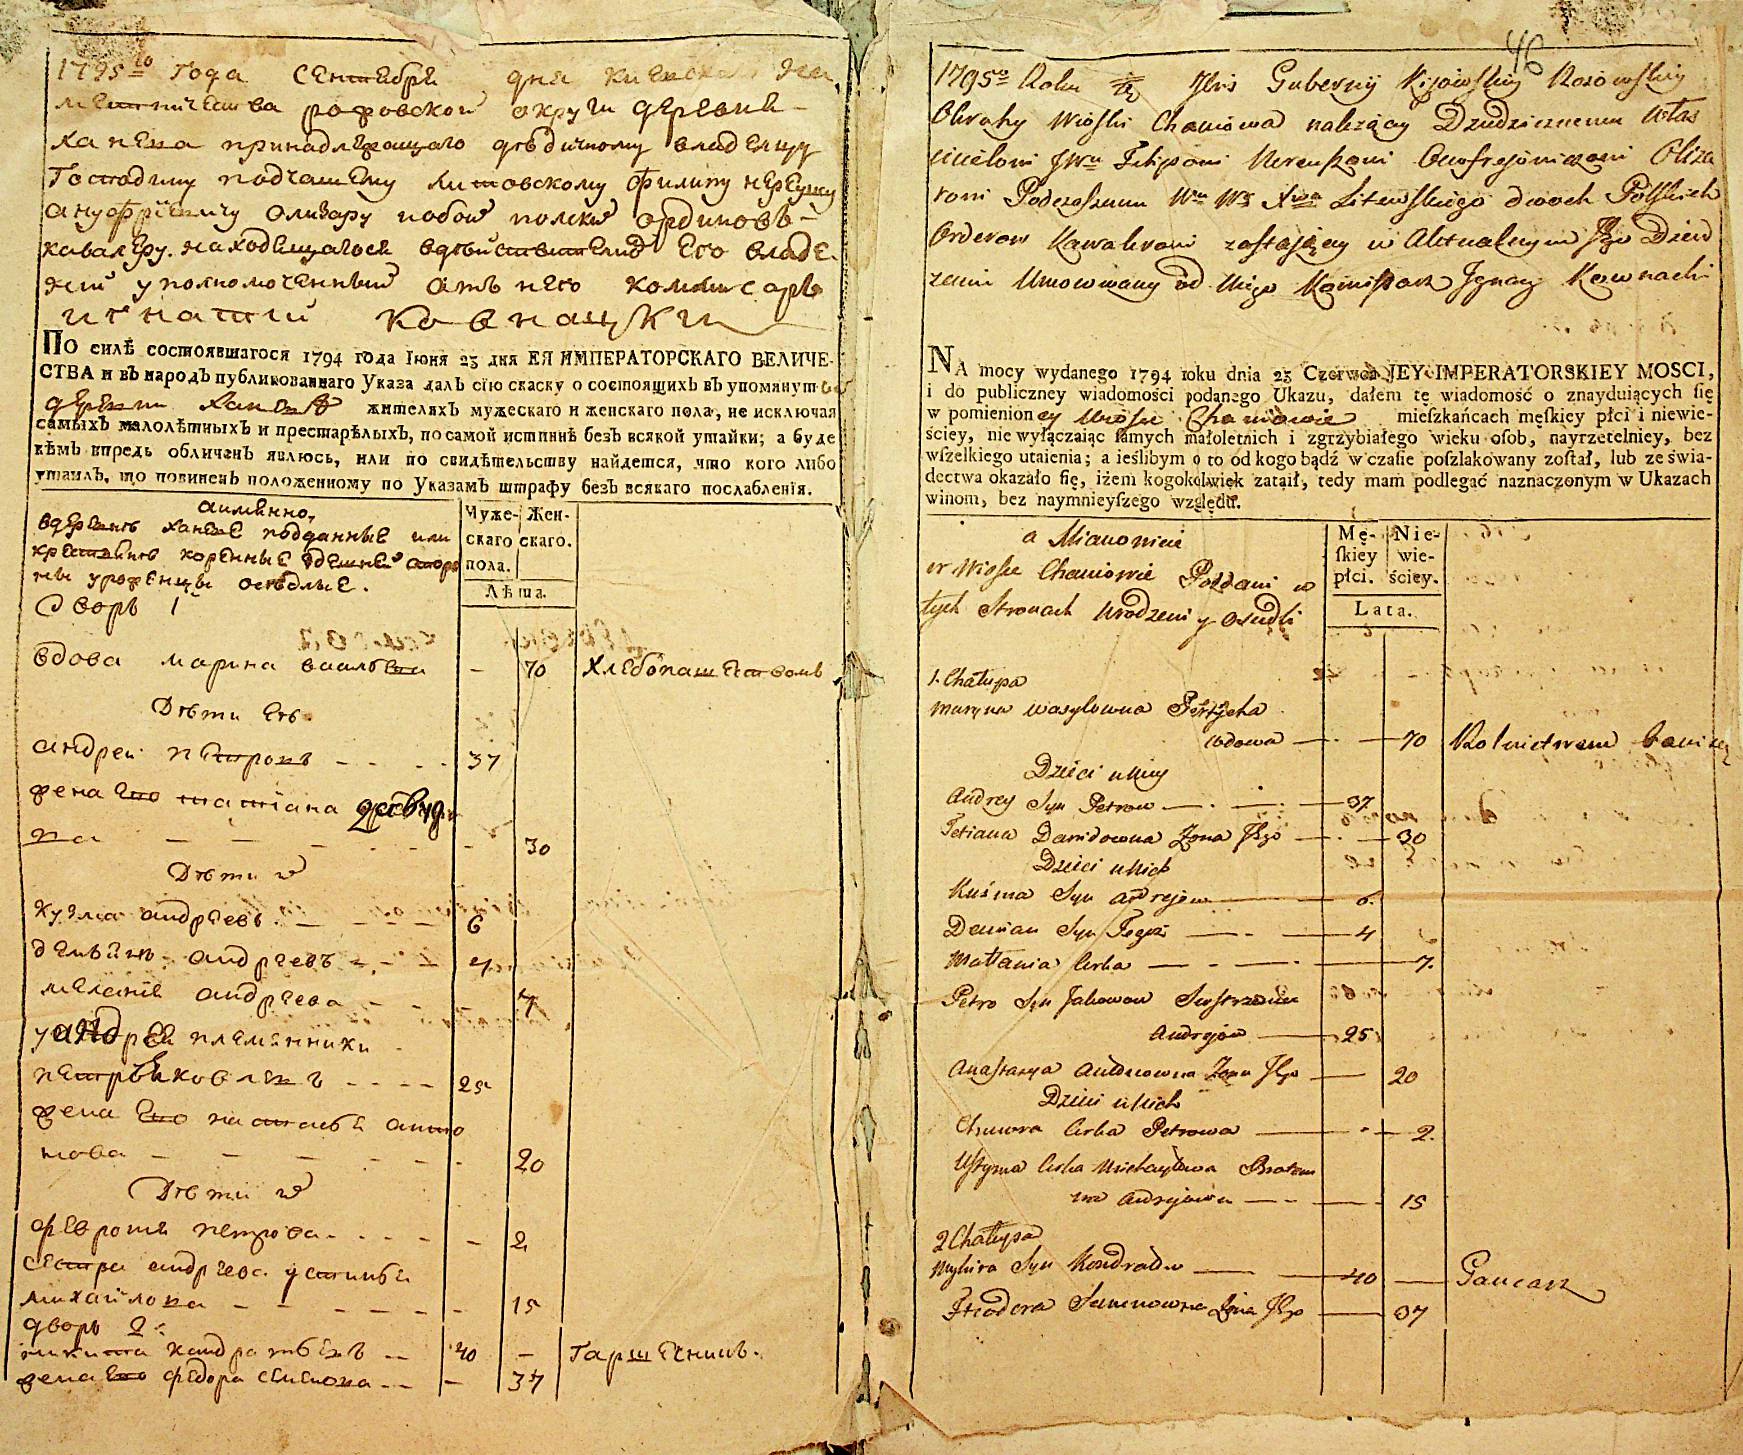 46
1795го года сентебря дня киевскаго На
местничества рафовской округи деревне
ханева принадлежащаго дедичному владелцу
Господину подчашему литовскому филипу нереушу
ануфриевичу оливару обои полски ординовъ
кавалеру. находещагося вдействително Его владе
нии уполномоченный отъ него комисаръ
игнатий ковнацки
ПО силѣ состоявшагося 1794 года Іюня 23 дня ЕЯ ИМПЕРАТОРСКАГО ВЕЛИЧЕ-
СТВА и въ народъ публикованнаго Указа далъ сію скаску о состоящихъ въ упомянутой
деревни Ханевѣ жителяхъ мужескаго и женскаго пола, не исключая
самыхъ малолѣтныхъ и престарѣлыхъ, по самой истиннѣ безъ всякой утайки; а буде
кѣмъ впредь обличенъ явлюсь, или по свидѣтельству найдется, что кого либо
утаилъ, то повиненъ положенному по Указамъ штрафу безъ всякаго послабленія.
аимянно,
вдеревнѣ ханеве подданные или
крестьянѣ коренные здешней сторо
ны уроженцы оседлые.
дворъ 1
Муже-
скаго
пола.
Жен-
скаго.
Лѣта.
вдова марина васильева - 70 Хлебопашествомъ
Дѣти Еѣ
андреи петровъ 37
жена Его татиана давидо
на 30
Дѣти их
кузма андреевъ 6
демьянъ андреевъ 4
мелания андреева 7
у андрея племянники
петръ яковлевъ 25
жена Его настасья анто
нова 20
Дѣти их
феврония петрова 2
сестра андреева устинья
михайлова 15
дворъ 2
никита кандратьевъ 40 - Гаршечникъ.
жена Его федора семенова - 37
1795go Roku Msca Gubernij Kijowskiey Rafowskiey
Okruhy Wioski Chaniowa należącey Dziedzicznemu Włas
cicielowi JWu Filipowi Nereuszowi Onofrejowiczowi Oliza
rowi Podczaszemu Wu Wo Xwa Litewskiego dwoch Polskich
Orderow Kawalerowi zostającey w Aktualnym Jego Dzier
żeniu Umocowany od Niego Komissarz Ignacy Kownacki
NA mocy wydanego 1794 roku dnia 23 Czerwca JEY IMPERATORSKIEY MOSCI,
i do publiczney wiadomości podanego Ukazu, dałem tę wiadomość o znayduiących się
w pomienioney Wiosce Chaniowie mieszkańcach męskiey płci i niewie-
ściey, nie wyłączaiąc samych małoletnich i zgrzybiałego wieku osob, nayrzetelniey, bez
wszelkiego utaienia; a ieślibym o to od kogo bądź w czasie poszlakowany został, lub ze świa-
dectwa okazało się, iżem kogokolwięk zataił, tedy mam podlegać naznaczonym w Ukazach
winom, bez naymnieyszego względu.
a Mianowicie
w Wiosce Chaniowie Poddani w
tych Stronach Urodzeni y Osiedli
Mę-
skiey
płci.
Nie-
wie-
ściey.
Lata.
1. Chałupa
Maryna Wasylowna Petrycha
wdowa 70 Rolnictwem bawiący
Dzieci u Niey
Andrey Syn Petrow 37
Tetiana Dawidowna Żona Jego 30
Dzieci u Nich
Kuźma Syn Andrejow 6.
Demian Syn Tegoż 4
Małania Corka 7.
Petro Syn Jakowow Siostrzeniec
Andrejow 25
Anastazya Antonowna Żona Jego 20
Dzieci u Nich
Chiwra Corka Petrowa 2.
Ustyna Corka Michayłowa Bratan
na Andrejowa 15
2 Chałupa
Mykita Syn Kondratow 40 Gancarz
Fteodora Semenowna Żona Jego 37